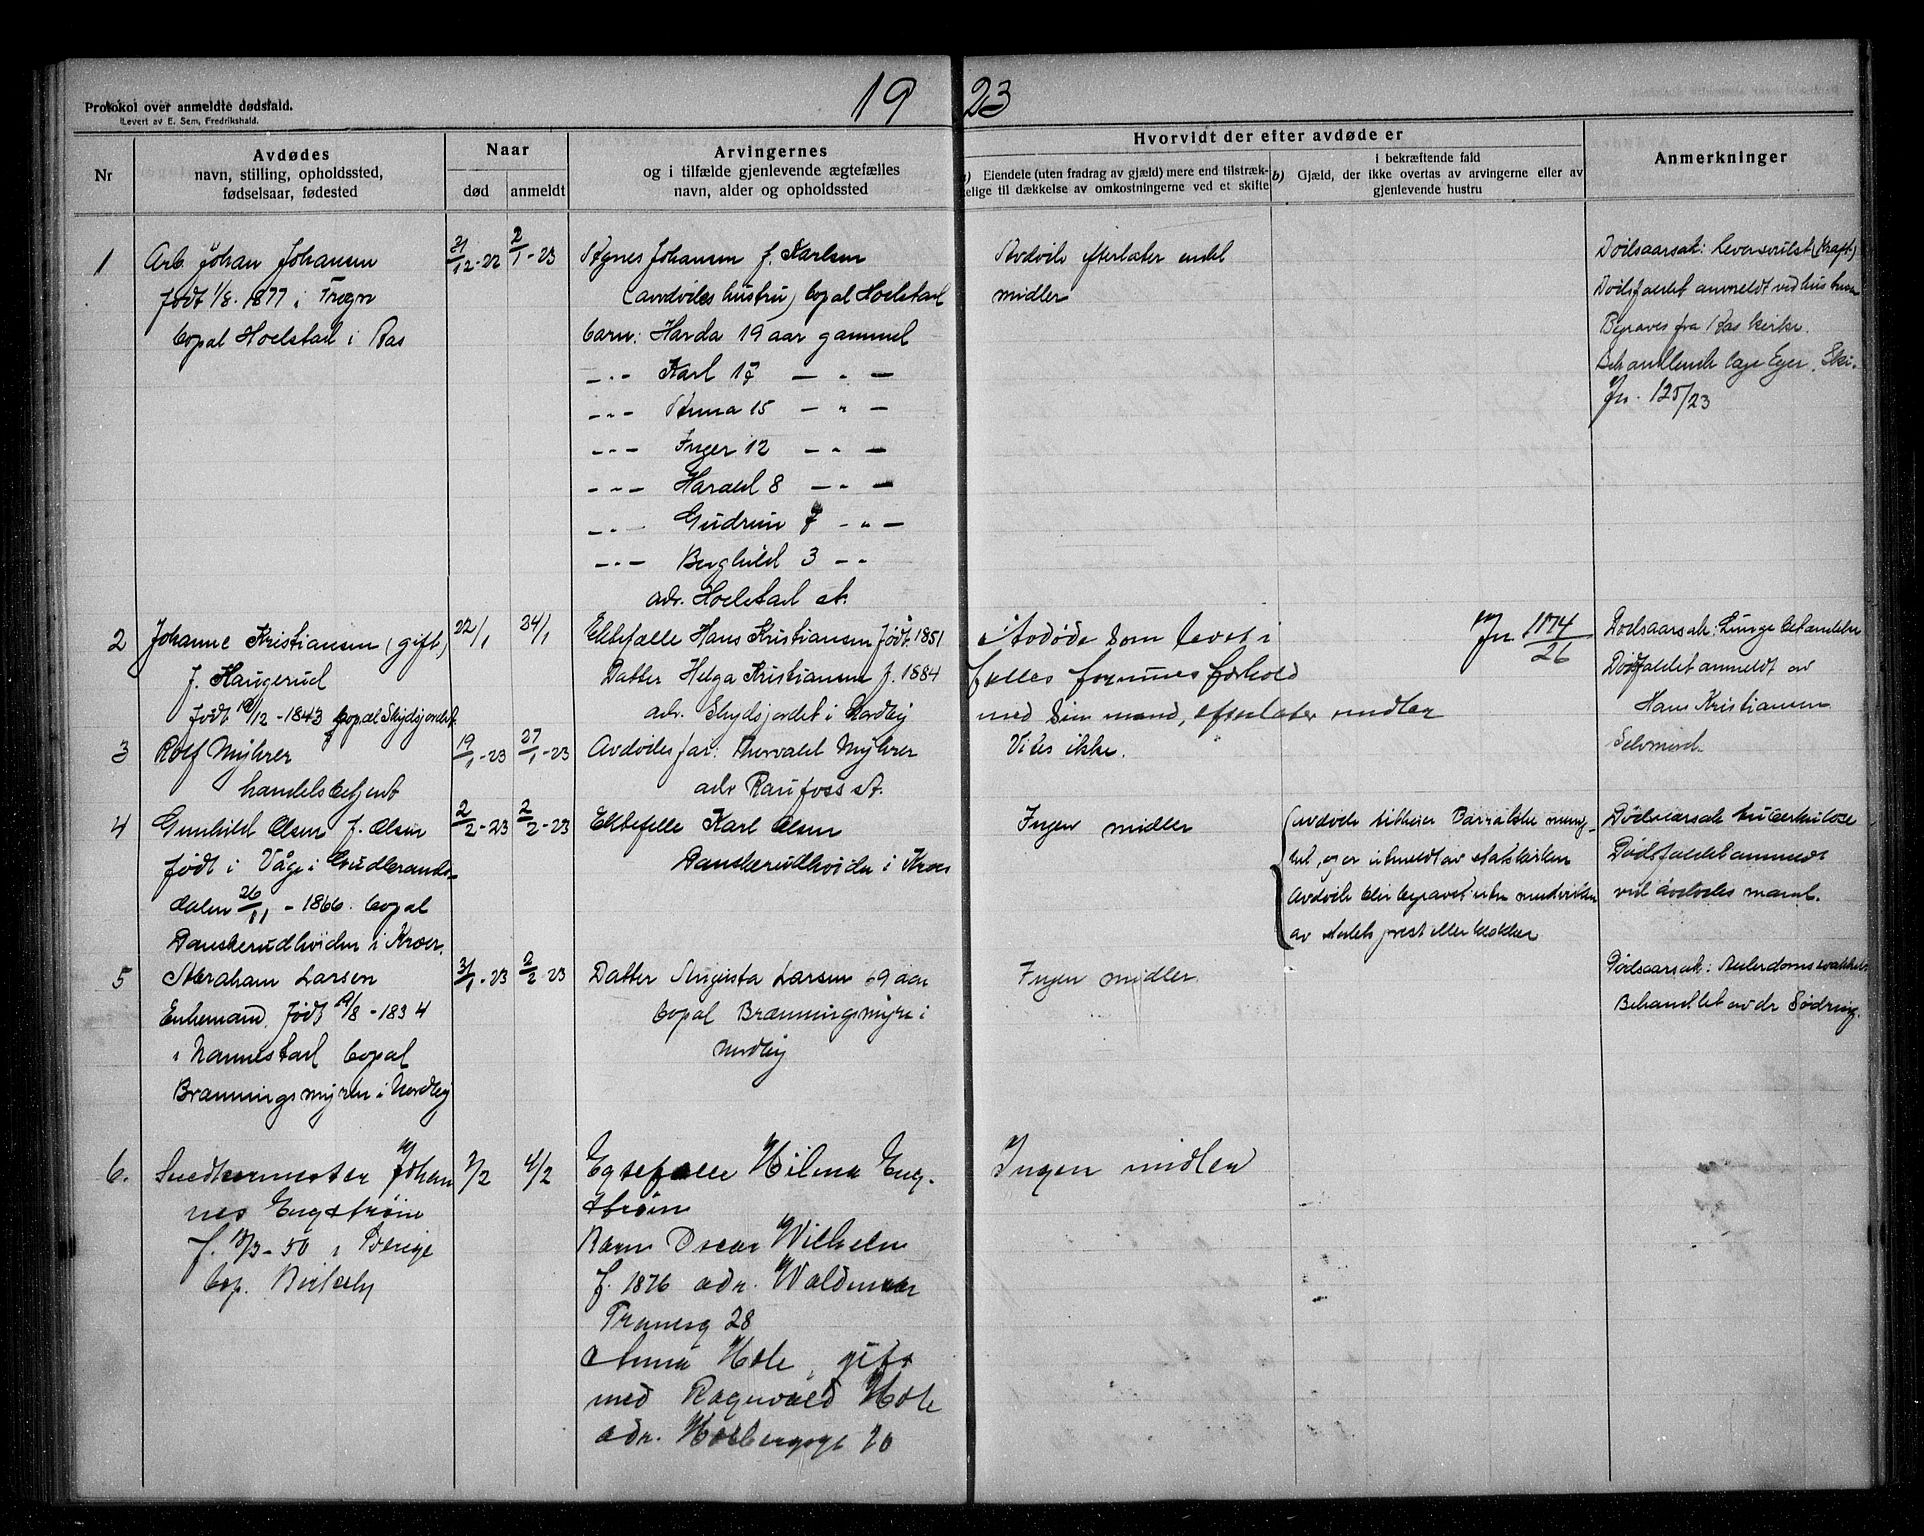 19 23
Protokol over anmeldte dødsfald.
Levert av E. Sem, Fredrikshald.
Nr
Avdødes
navn, stilling, opholdssted,
fødselsaar, fødested
Naar
død
anmeldt
Arvingernes
og i tilfælde gjenlevende ægtefælles
navn, alder og opholdssted
Hvorvidt der efter avdøde er
a) Eiendele (uten fradrag av gjæld) mere end tilstræk-
kelige til dækkelse av omkostningerne ved et skifte
I bekræftende fald
b) Gjæld, der ikke overtas av arvingerne eller av
gjenlevende hustru
Anmerkninger
1
Arb. Johan Johansen
født 1/8. 1877 i Frogn
bopæl Hoelstad i Aas
31/12-22
2/1-23
Agnes Johansen f. Karlsen
(avdødes hustru) bopæl Hoelstad
barn: Harda 19 aar gammel
-"- Karl 17 - " -
-"- Anna 15 - " -
-"- Inger 12 - " -
-"- Harald 8 - " -
-"- Gudrun 7 - " -
-"- Berghild 3 - "
adr. Hoelstad st.
Avdøde efterlater endel
midler
Dødsaarsak: Leversvulst (Kræft)
Dødsfaldet anmeldt ved hustruen
Begraves fra Aas kirke.
Behandlende læge Eger, Ski.
Jn. 125/23
2
Johanne Kristiansen (gift)
f. Haugerud
født 12/12-1843 bopæl Skydsjordet
22/1
24/1
Ektefælle Hans Kristiansen født 1851
Datter Helga Kristiansen f. 1884
adr. Skydsjordet i Nordby
Avdøde som levet i
fælles formuesforhold
med sin mand, efterlater midler
Jn 1174/26
Dødsaarsak: Lungebetændelse
Dødsfaldet anmeldt av
Hans Kristiansen
3
Rolf Myhrer
handelsbetjent
19/1-23
27/1-23
Avdødes far: Thorvald Myhrer
adr Raufoss st.
Vites ikke.
Selvmord
4
Gunhild Olsen f. Olsen
født i Våge i Gudbrands-
dalen 26/11-1866. bopæl
Danskerudhøiden i Kroer.
2/2-23
2/2-23
Ektefelle Karl Olsen
Danskerudhøiden i Kroer
Ingen midler
(Avdøde tilhører
het, og er utmeldt av statskirken
Avdøde blir begravet uten medvirken
av stedets prest eller klokker
Dødsaarsak tuberkulose
Dødsfaldet anmeldt
ved avdødes mand.
5
Abraham Larsen
Enkemand, født 19/8-1834
i Nannestad bopæl
Brænningsmyren i Nordby
31/1-23
2/2-23
Datter Augusta Larsen 69 aar
bopæl Brænningsmyren i
Nordby
Ingen midler
Dødsaarsak: Alderdomssvakhet
Behandlet av dr Sødring.
6.
Snedkermester Johan
nes Engstrøm
f. 50 i Sverige
bop. Birkeby
2/2
4/2
Egtefælle Hilma Eng-
strøm
Barn Oscar Wilhelm
f. 1876 adr. Waldemar
Tranesg 28
Anna Hole, gift
med Ragnvald Hole
adr. Holbergsgt 20
Ingen midler